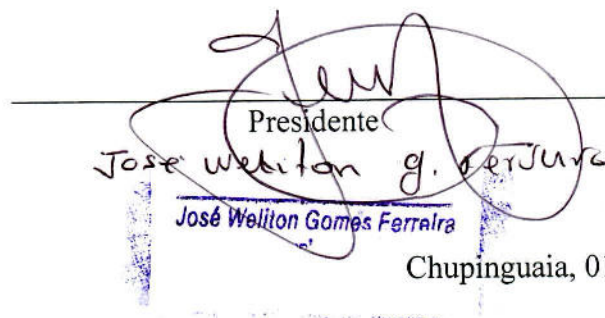 Presidente
José Weliton g.
José Weliton Gomes Ferreira
Chupinguaia, 01